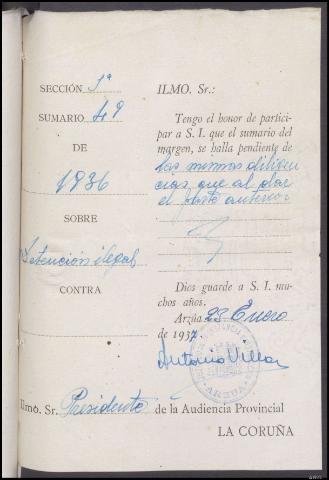 SECCIÓN 1ª
SUMARIO 49
DE
1936
SOBRE
Detención ilegal
CONTRA
ILMO. Sr.:
Tengo el honor de partici-
par a S. I. que el sumario del
margen, se halla pendiente de
las mismas diligen
cias, que al dar
el parte anterior
Dios guarde a S. I. mu-
chos años.
Arzúa 23 Enero
de 1937
Antonio Villar
Ilmo. Sr. Presidente de la Audiencia Provincial
LA CORUÑA
ARZUA